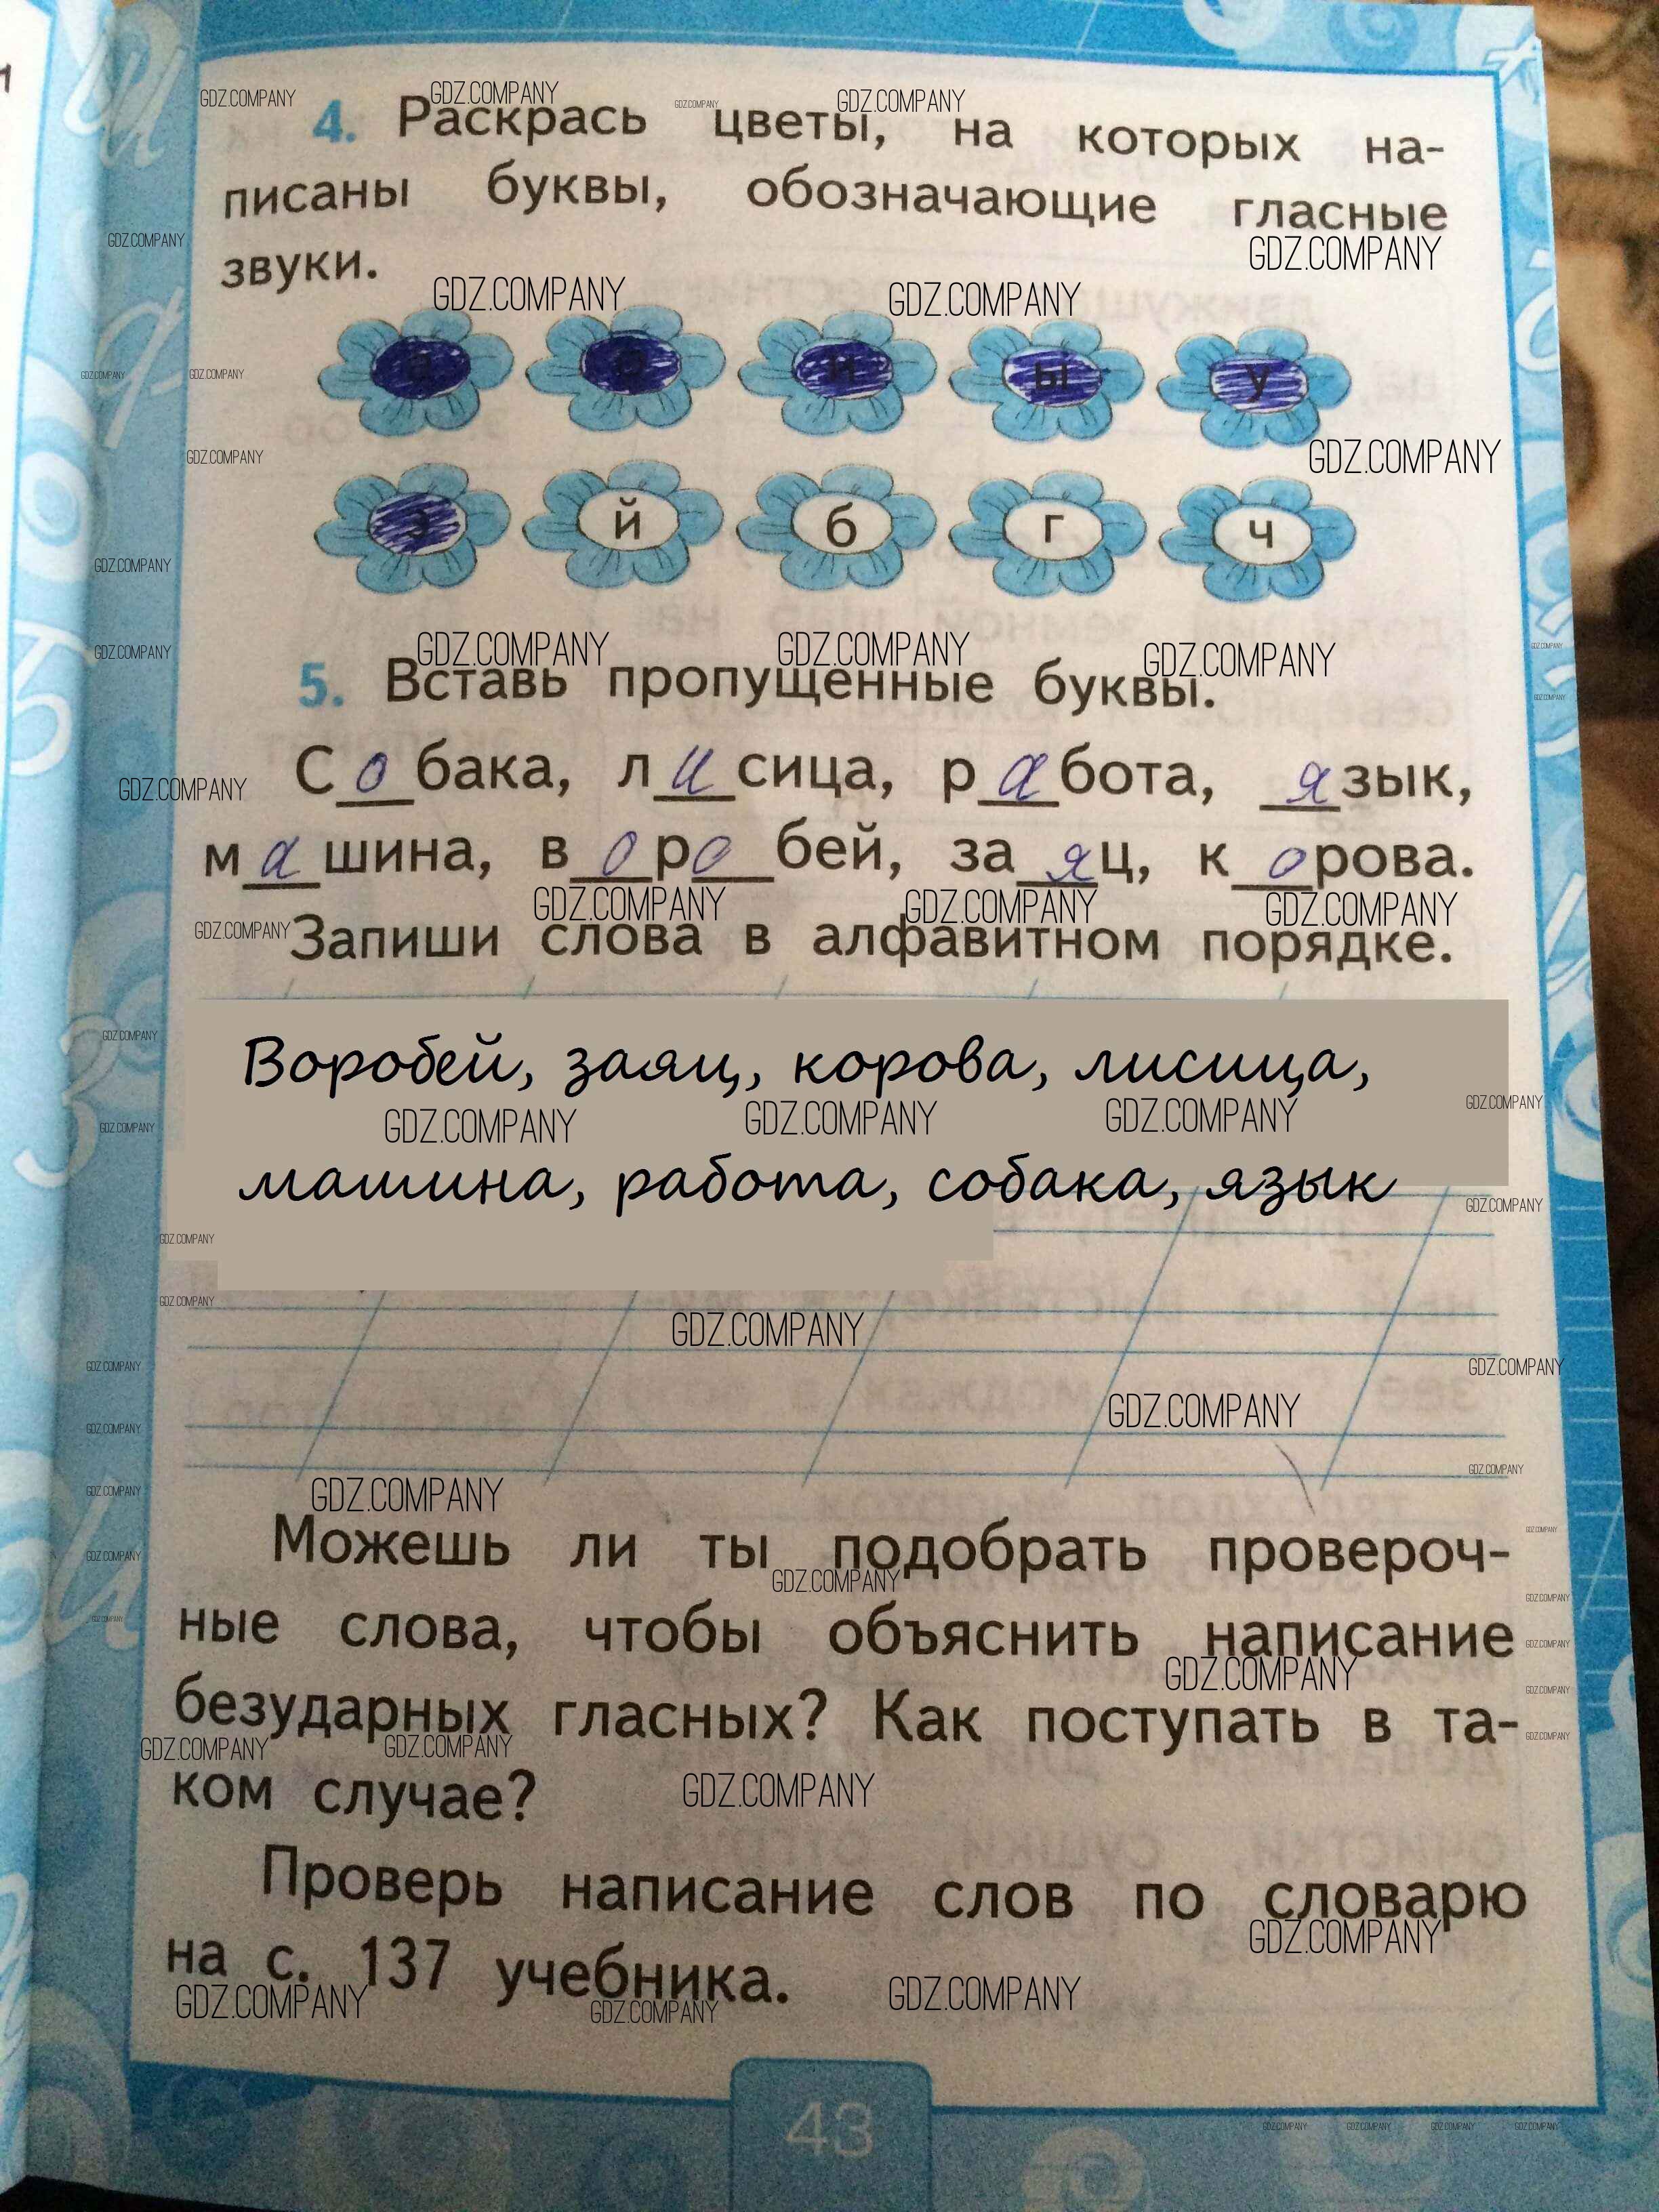 4. Раскрась цветы, на которых на-
писаны буквы, обозначающие гласные
звуки.
и ы у
э й б г ч
5. Вставь пропущенные буквы.
Собака, лисица, работа, язык,
машина, воробей, заяц, корова.
Запиши слова в алфавитном порядке.
Воробей, заяц, корова, лисица,
машина, работа, собака, язык
Можешь ли ты подобрать провероч-
ные слова, чтобы объяснить написание
безударных гласных? Как поступать в та-
ком случае?
Проверь написание слов по словарю
на с. 137 учебника.
43
GDZ.COMPANY